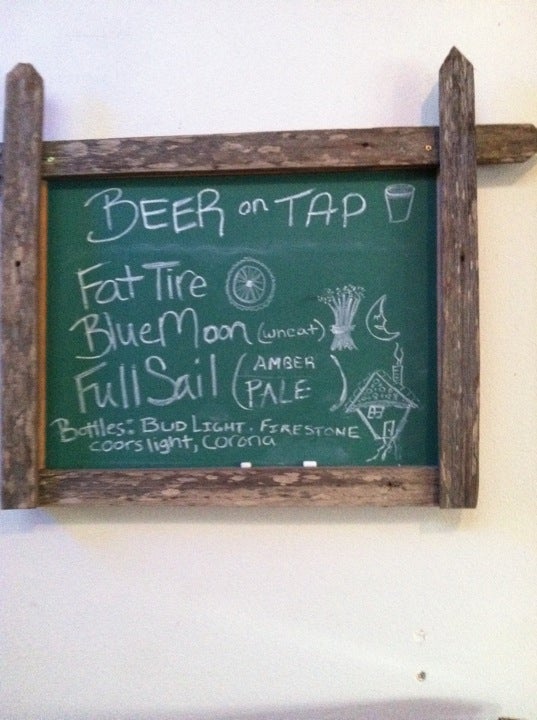 BEER on TAP
Fat Tire
Blue Moon (wheat)
Full Sail (AMBER
PALE)
Bottles: BUD LIGHT. FIRESTONE
coors light, corona